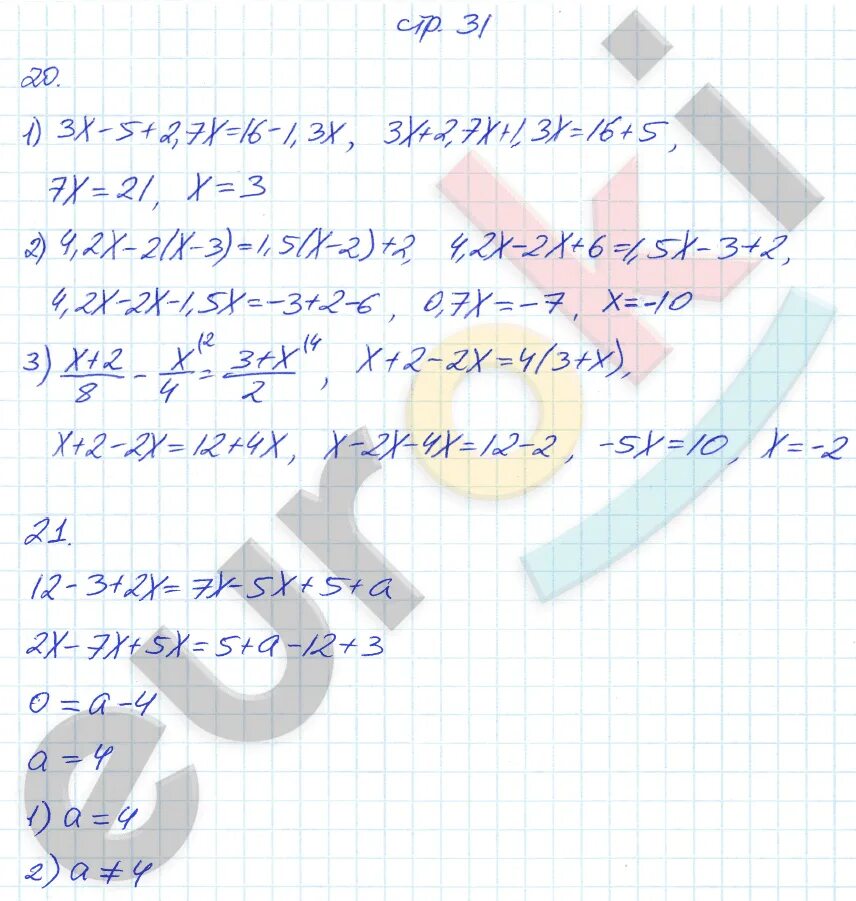 стр. 31
20.
1) 3x-5+2,7x=16-1,3x, 3x+2,7x+1,3x=16+5,
7x=21, x=3
2) 4,2x-2(x-3)=1,5(x-2)+2, 4,2x-2x+6=1,5x-3+2,
4,2x-2x-1,5x=-3+2-6, 0,7x=-7, x=-10
3) (x+2)/8 - x/4 |2 = (3+x)/2 |4, x+2-2x=4(3+x),
x+2-2x=12+4x, x-2x-4x=12-2, -5x=10, x=-2
21.
12-3+2x=7x-5x+5+a
2x-7x+5x=5+a-12+3
0=a-4
a=4
1) a=4
2) a≠4
euroki